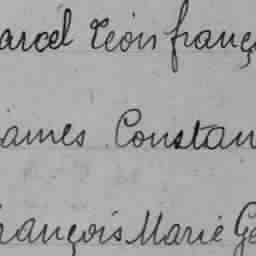 arcel Léon franç
ames Constan
rançois Marie Ge